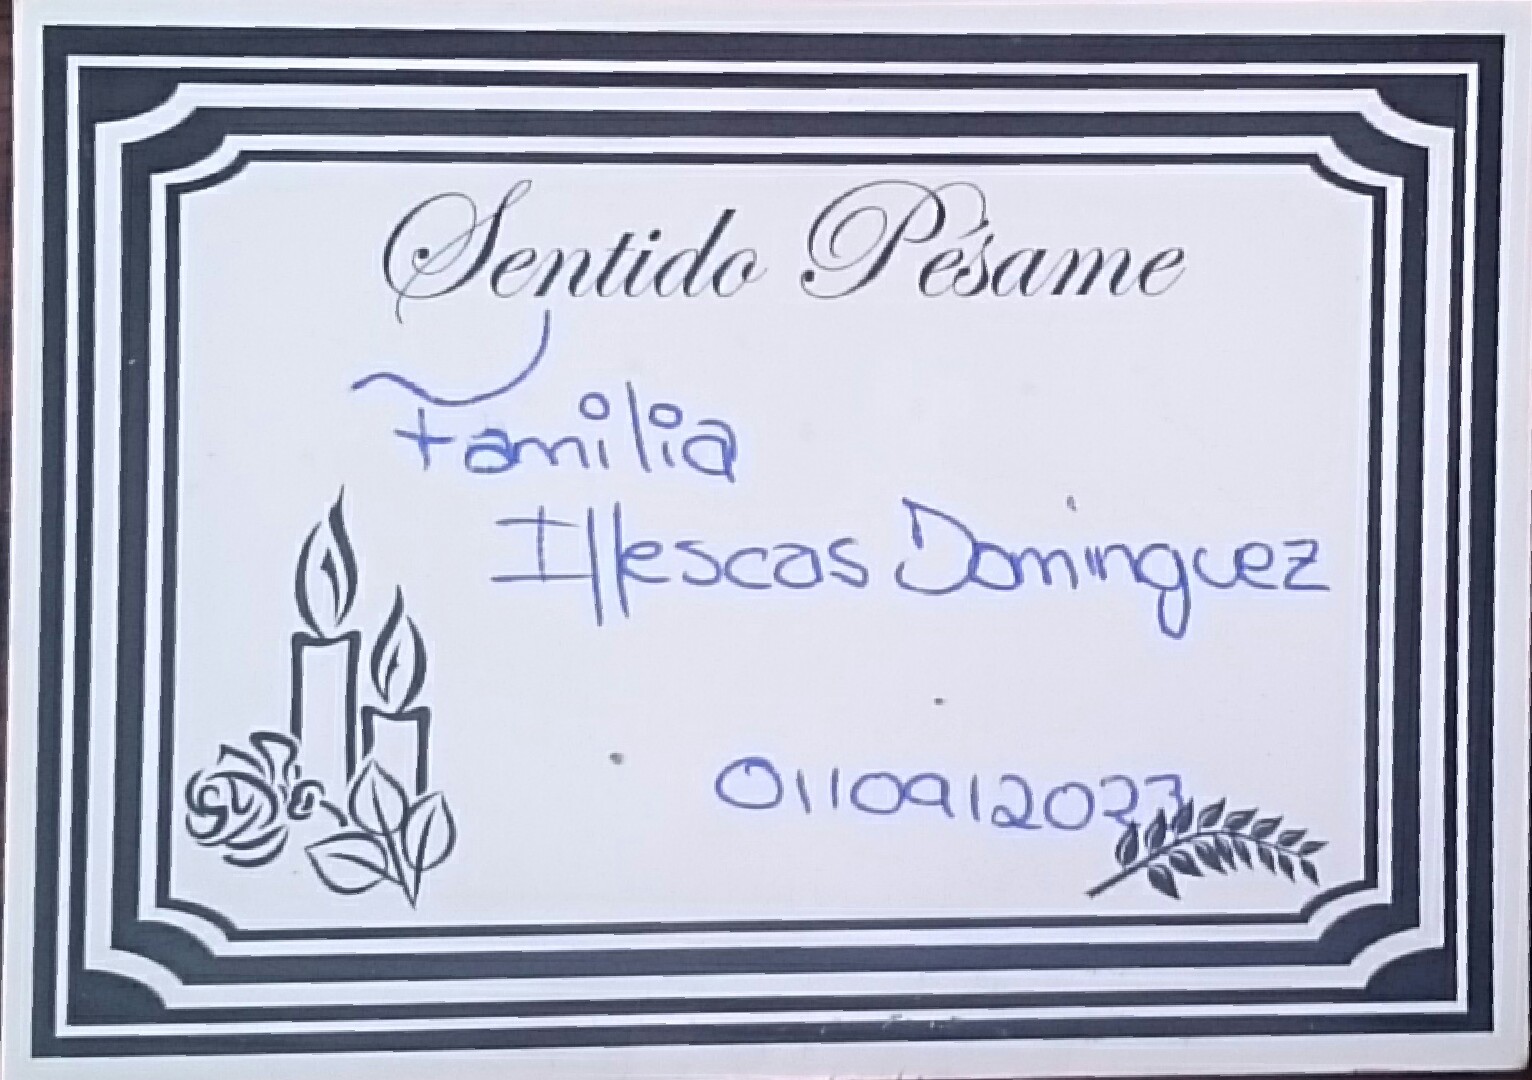 Sentido Pésame
Familia
Illescas Dominguez
01/09/2023